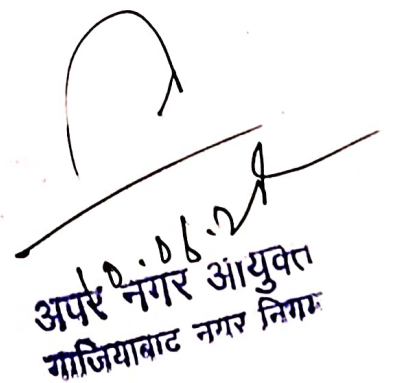 10.06.24
अपर नगर आयुक्त
गाजियाबाद नगर निगम